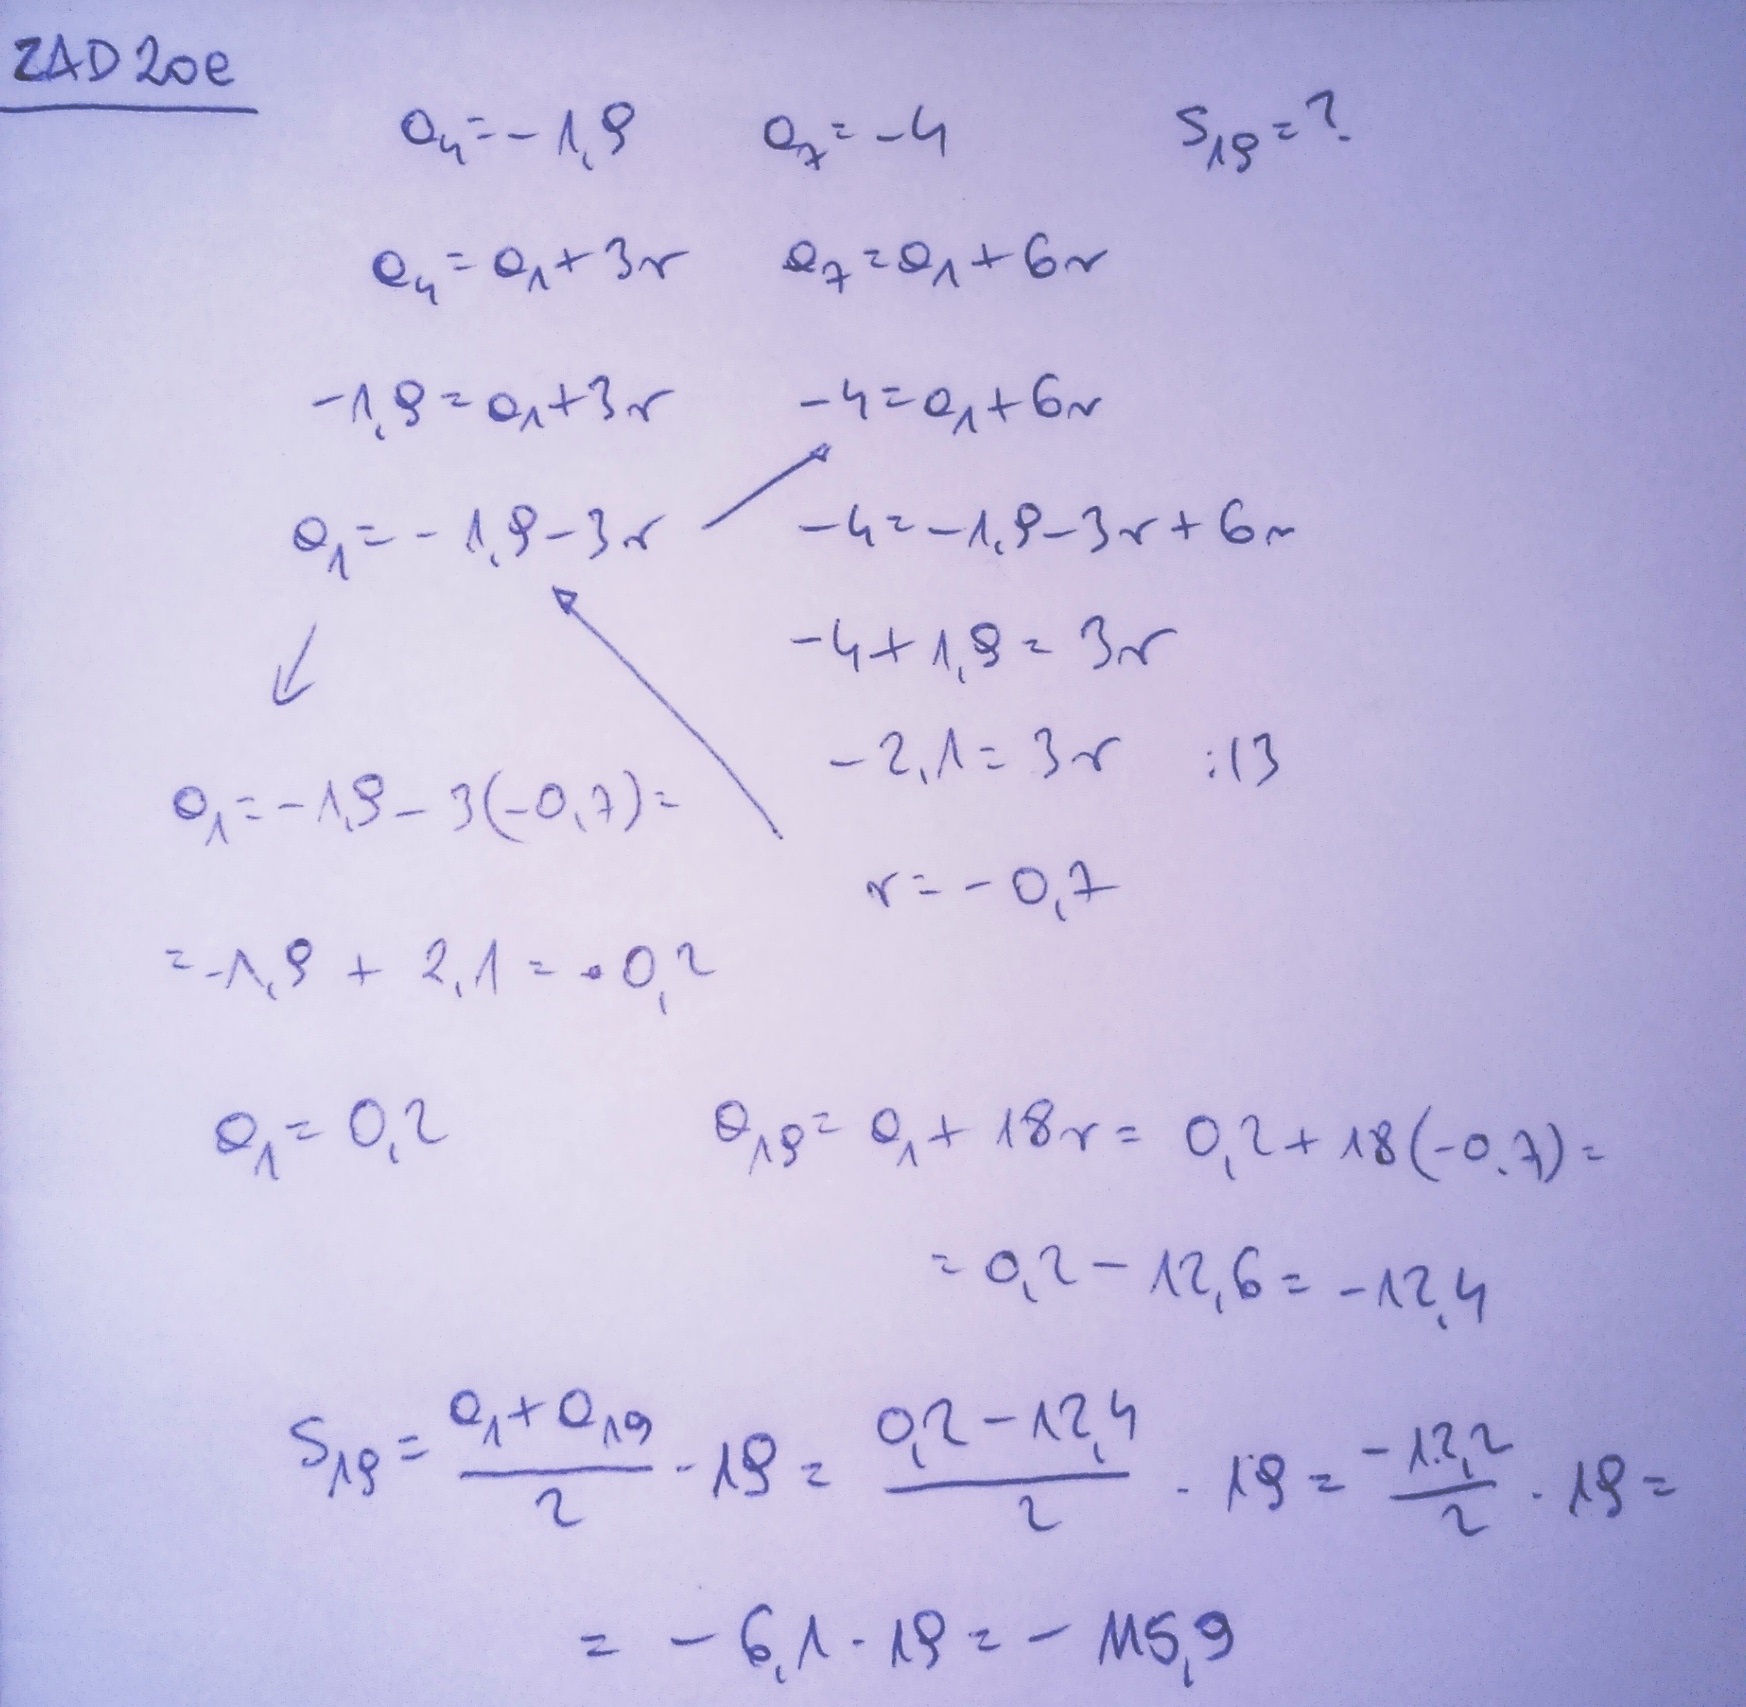 ZAD 20e
a₄ = -1,9 a₇ = -4 S₁₉ = ?
a₄ = a₁ + 3r a₇ = a₁ + 6r
-1,9 = a₁ + 3r -4 = a₁ + 6r
a₁ = -1,9 - 3r -4 = -1,9 - 3r + 6r
-4 + 1,9 = 3r
-2,1 = 3r :13
a₁ = -1,9 - 3(-0,7) =
r = -0,7
= -1,9 + 2,1 = 0,2
a₁ = 0,2 a₁₉ = a₁ + 18r = 0,2 + 18(-0,7) =
= 0,2 - 12,6 = -12,4
S₁₉ = (a₁ + a₁₉)/2 · 19 = (0,2 - 12,4)/2 · 19 = (-12,2)/2 · 19 =
= -6,1 · 19 = -115,9